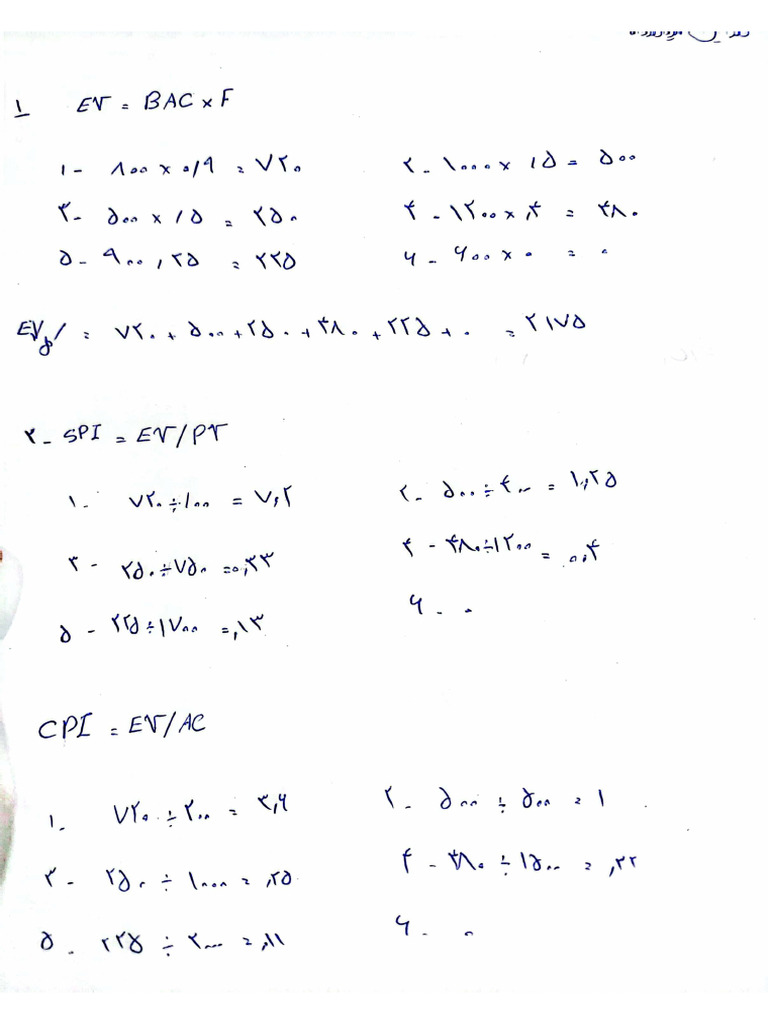 ۱ EV = BAC × F
۱- ۸۰۰ × ۰/۹ = ۷۲۰ ۲- ۱۰۰۰ × /۵ = ۵۰۰
۳- ۵۰۰ × /۵ = ۲۵۰ ۴- ۱۲۰۰ × ,۴ = ۴۸۰
۵- ۹۰۰ , ۲۵ = ۲۲۵ ۶- ۶۰۰ × ۰ = ۰
EV = ۷۲۰ + ۵۰۰ + ۲۵۰ + ۴۸۰ + ۲۲۵ + ۰ = ۲۱۷۵
۲- SPI = EV/PV
۱- ۷۲۰ ÷ ۱۰۰ = ۷,۲ ۲- ۵۰۰ ÷ ۴۰۰ = ۱,۲۵
۳- ۲۵۰ ÷ ۷۵۰ = ۰,۳۳ ۴- ۴۸۰ ÷ ۱۲۰۰ = ۰,۴
۵- ۲۲۵ ÷ ۱۷۰۰ = ,۱۳ ۶- ۰
CPI = EV/AC
۱- ۷۲۰ ÷ ۲۰۰ = ۳,۶ ۲- ۵۰۰ ÷ ۵۰۰ = ۱
۳- ۲۵۰ ÷ ۱۰۰۰ = ,۲۵ ۴- ۴۸۰ ÷ ۱۵۰۰ = ,۳۲
۵- ۲۲۵ ÷ ۲۰۰۰ = ,۱۱ ۶- ۰